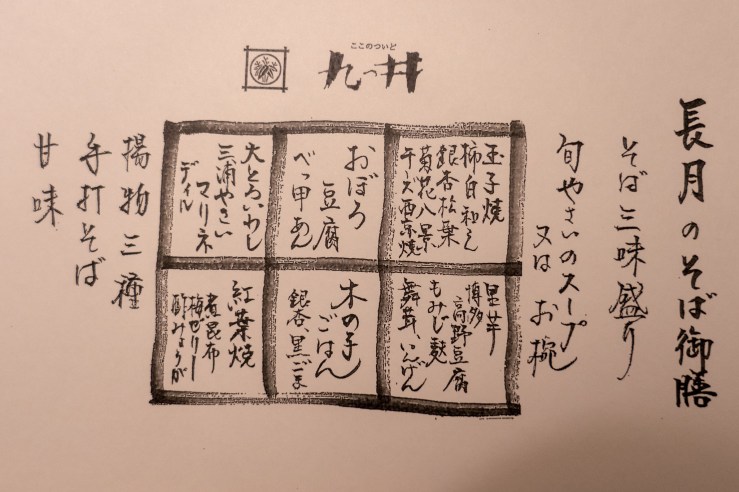 ここのついど
九つ井
長月のそば御膳
そば三味盛り
旬やさいのスープ
又は お椀
玉子焼
柿白和え
銀杏松葉
菊花八景
サーモン西京焼
おぼろ
豆腐
べっ甲あん
大とろいわし
三浦やさい
マリネ
ディル
里芋
博多
高野豆腐
もみじ麸
舞茸 いんげん
木の子
ごはん
銀杏 黒ごま
紅葉焼
煮昆布
梅ゼリー
酢みょうが
揚物三種
手打そば
甘味